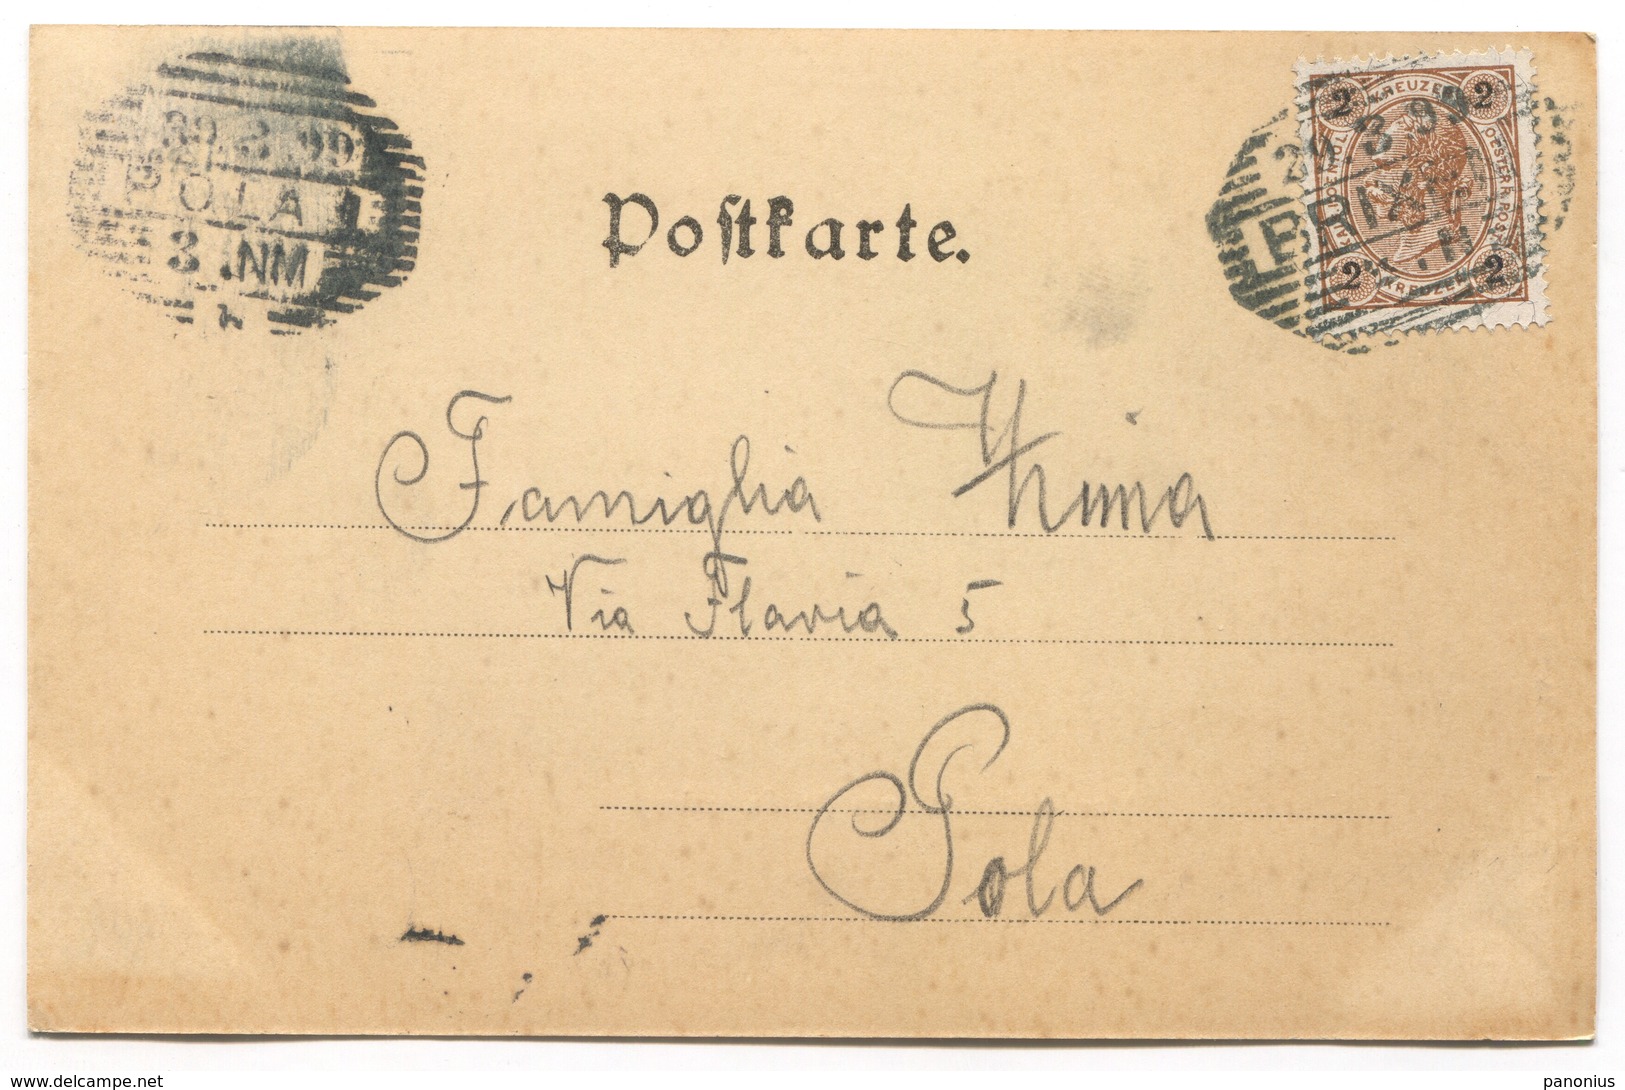 POLA
3 .NM
Postkarte.
2 KREUZER 2
OESTERR. POST
2 KREUZER 2
Famiglia
Via Flavia 5
Pola
delcampe.net
panonius